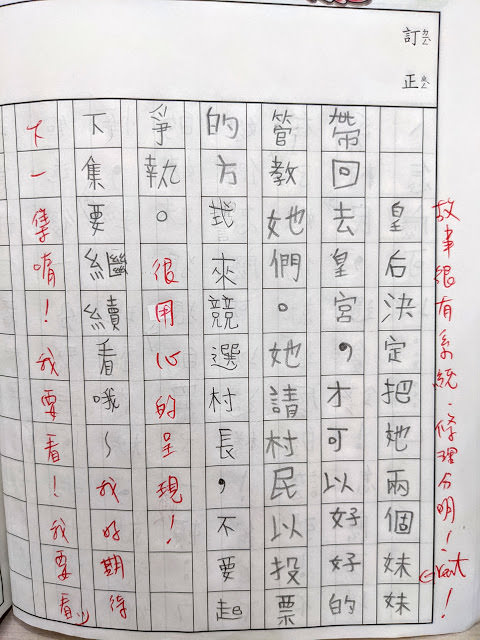 訂正
故事很有系統,條理分明! Great!
皇后決定把她兩個妹妹
帶回去皇宮,才可以好好的
管教她們。她請村民以投票
的方式來競選村長,不要起
爭執。很用心的呈現!
下集要繼續看哦~我好期待
下一集唷!我要看!我要看:)